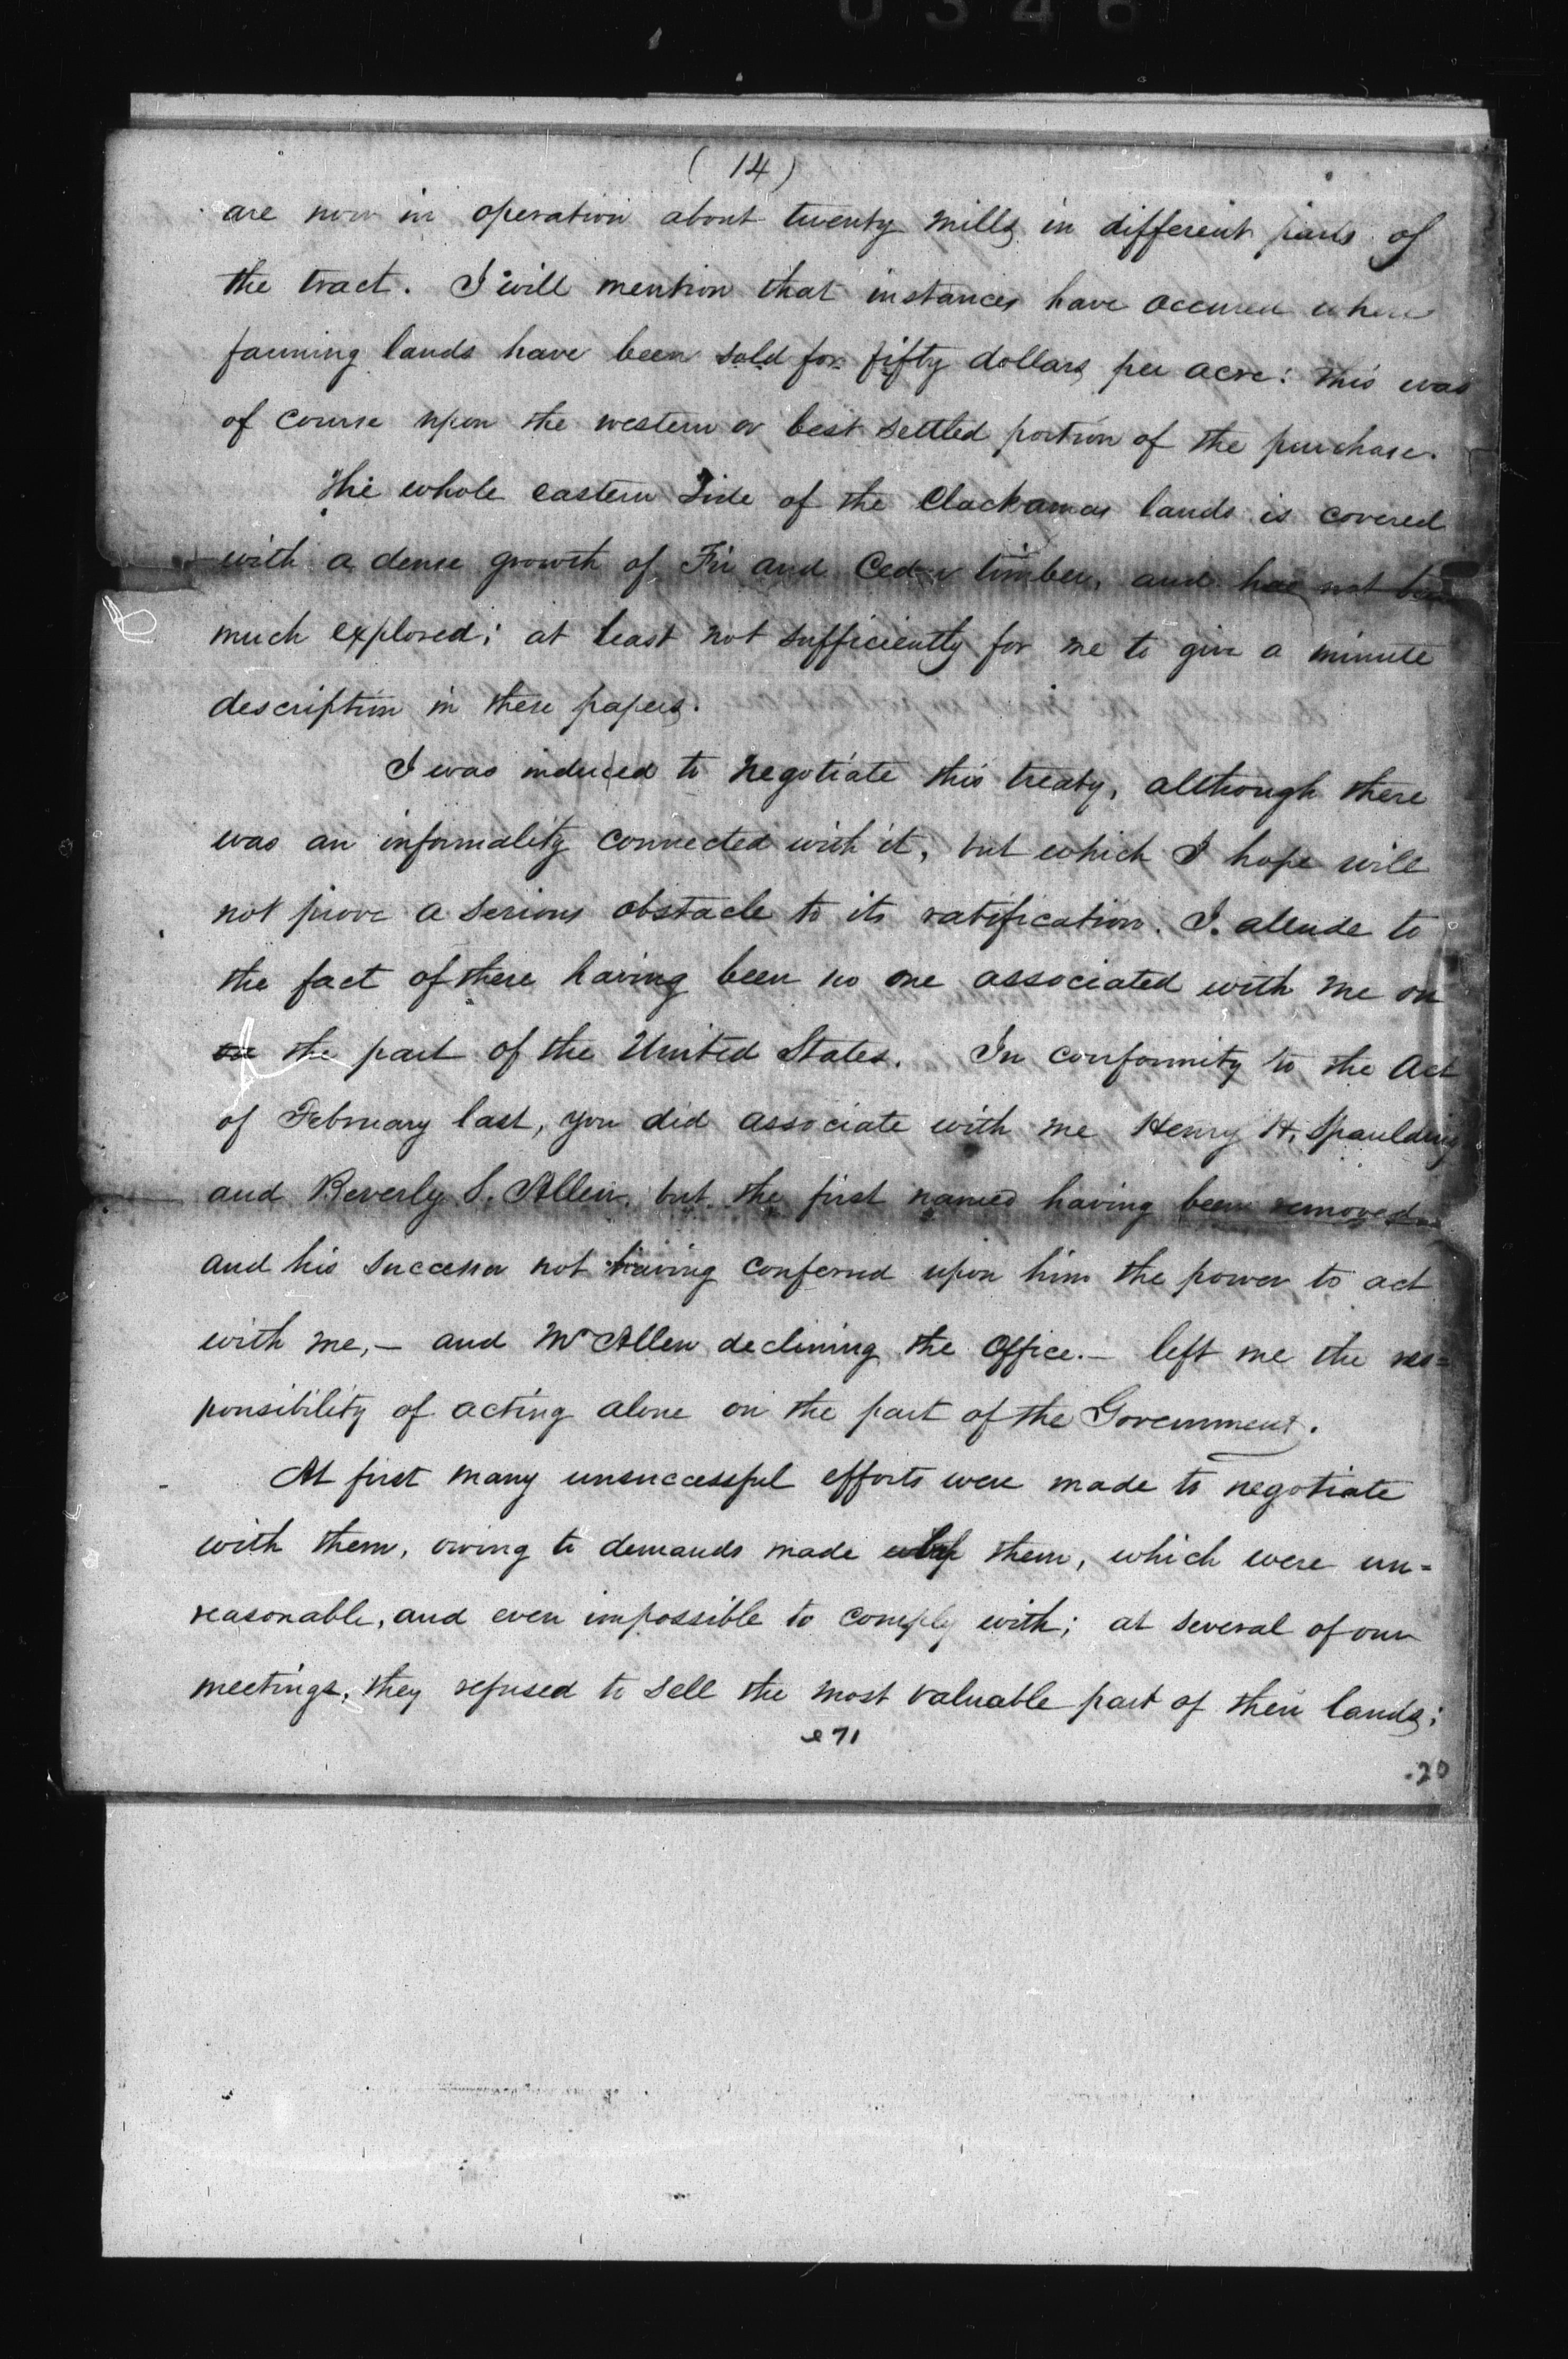 0346
(14)
are now in operation about twenty mills in different parts of
the tract. I will mention that instances have occured where
farming lands have been sold for fifty dollars per acre: this was
of course upon the western or best settled portion of the purchase.
The whole eastern side of the Clackamas lands is covered
with a dense growth of Fir and Cedar timber, and has not been
much explored; at least not sufficiently for me to give a minute
description in these papers.
I was induced to negotiate this treaty, although there
was an informality connected with it, but which I hope will
not prove a serious obstacle to its ratification. I. allude to
the fact of there having been no one associated with me on
on the part of the United States. In conformity to the Act
of February last, you did associate with me Henry H. Spaulding
and Beverly S. Allen, but the first named having been removed
and his successor not having conferred upon him the power to act
with me, — and Mr Allen declining the Office. — left me the res=
ponsibility of acting alone on the part of the Government.
At first many unsuccessful efforts were made to negotiate
with them, owing to demands made by them, which were un=
reasonable, and even impossible to comply with; at several of our
meetings, they refused to sell the most valuable part of their lands;
e71
.20